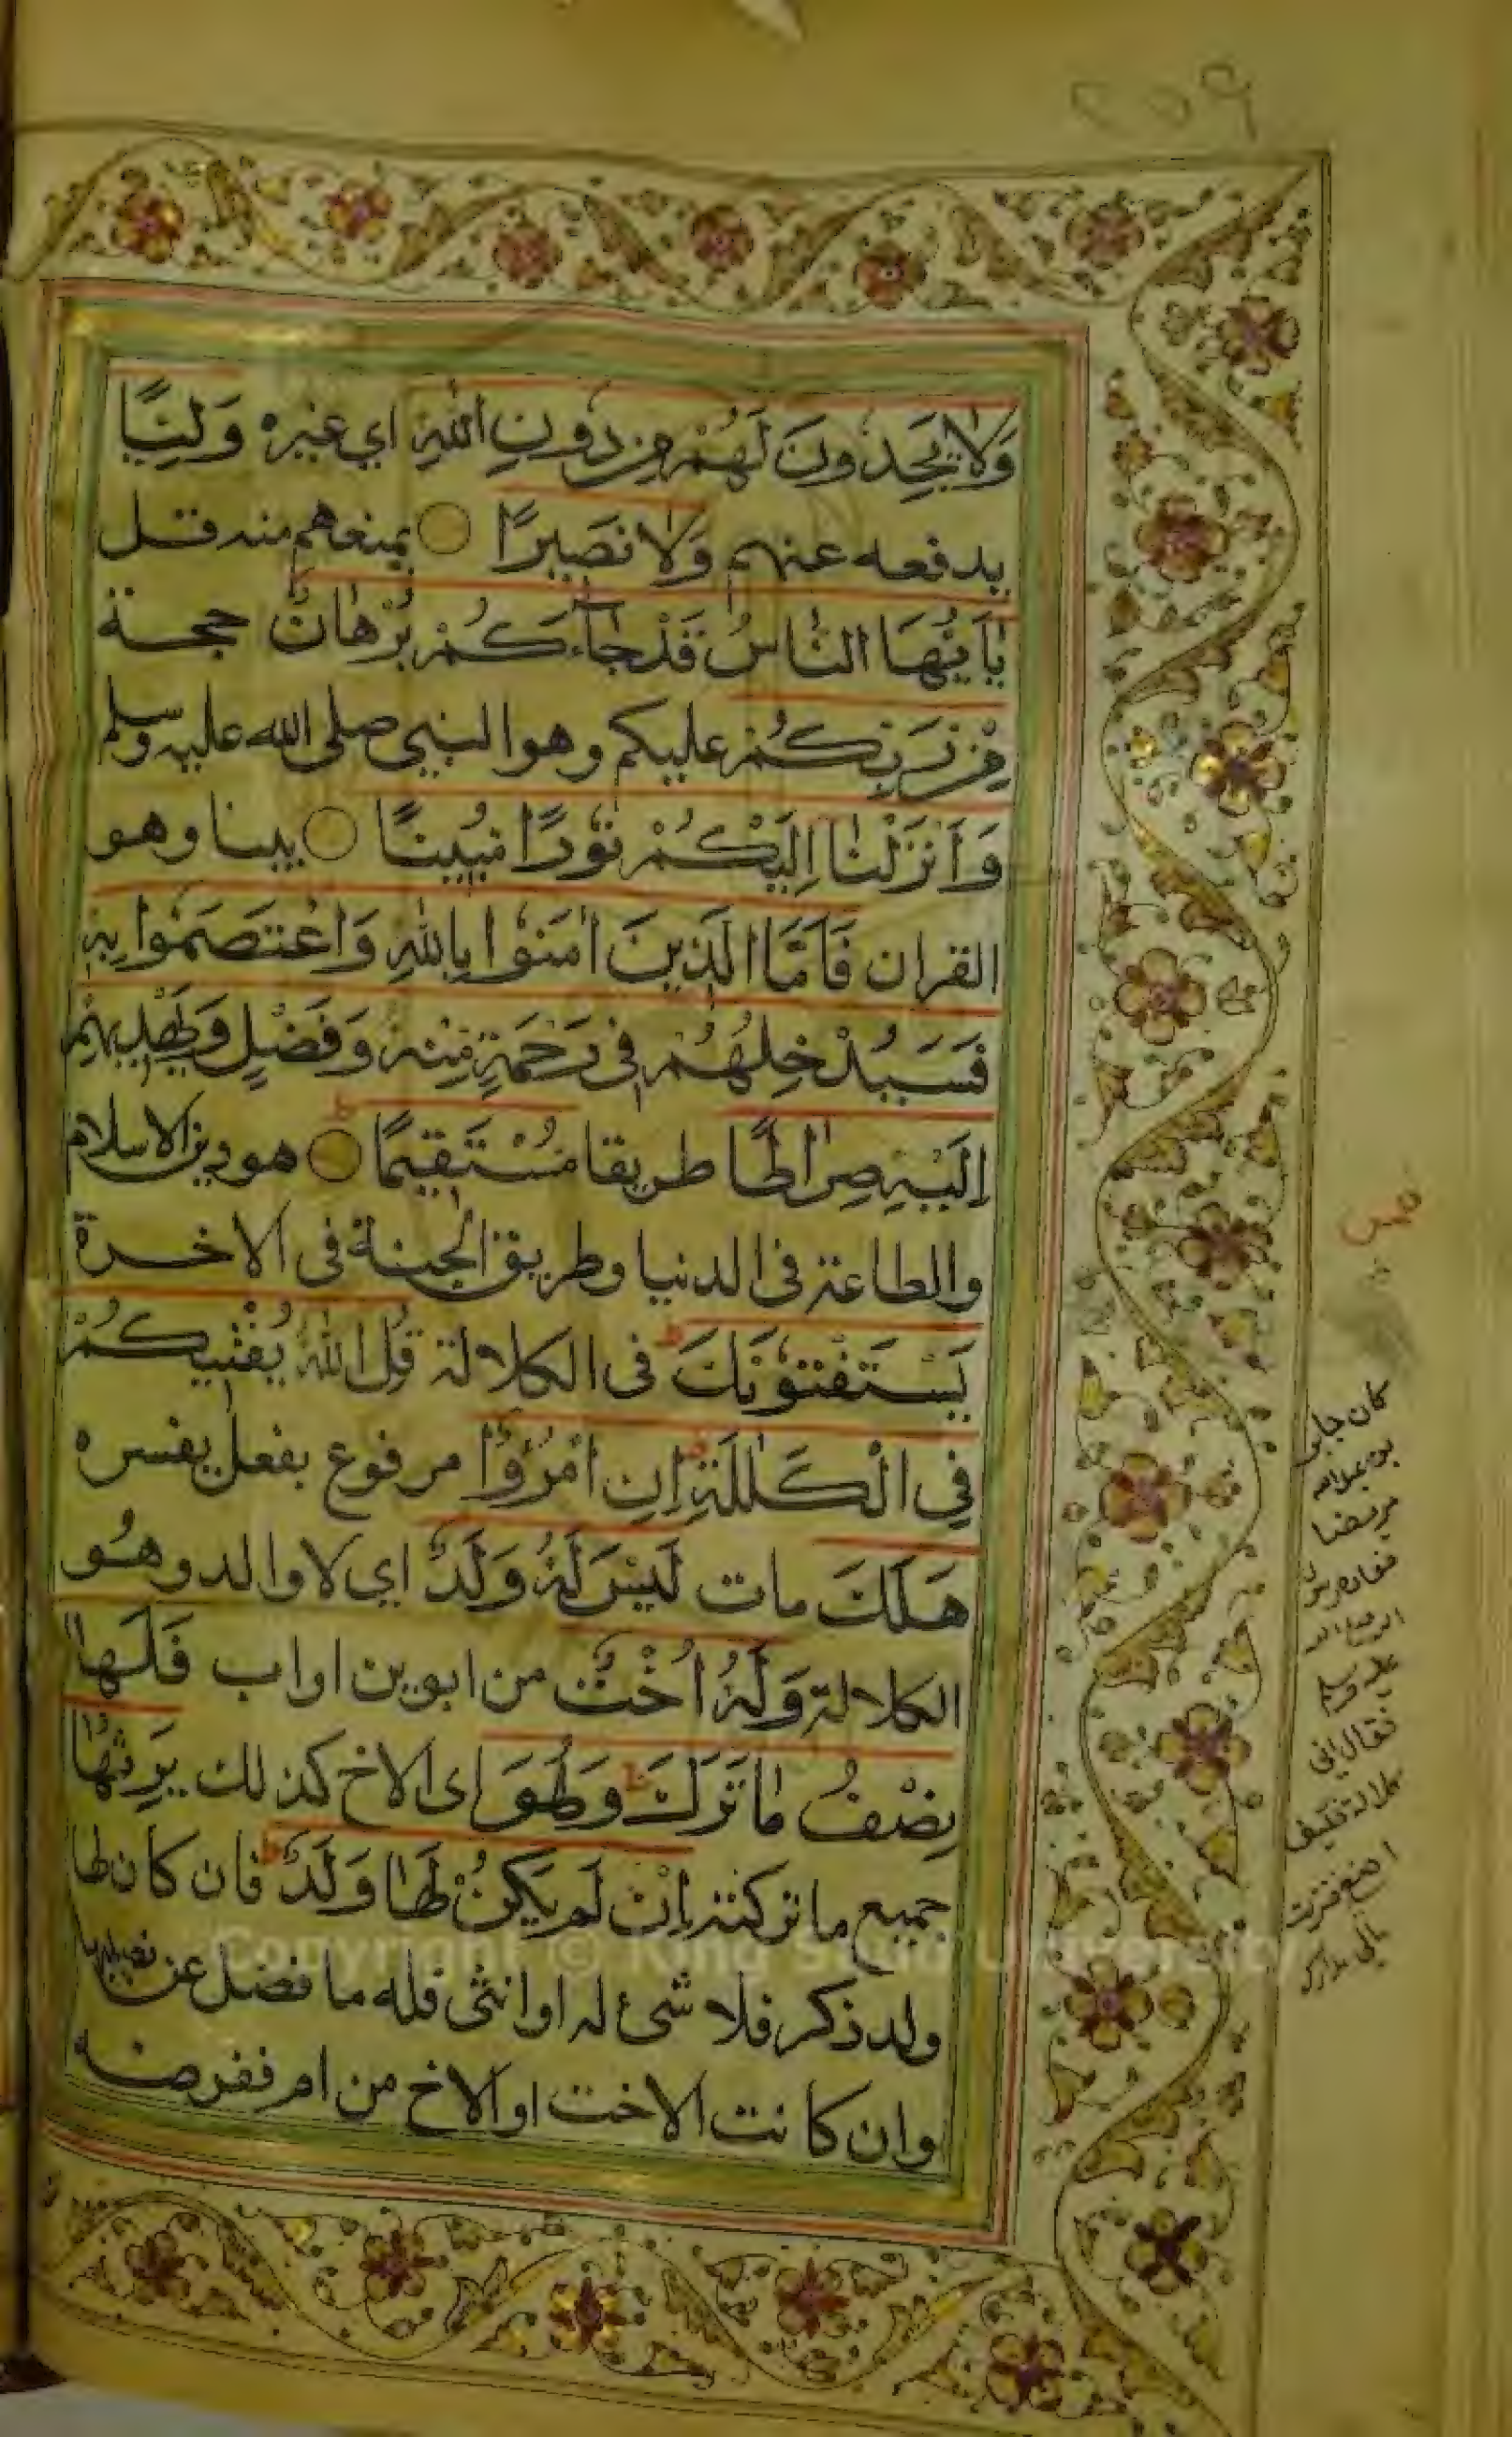 ٢٥٩
وَلَا يَجِدُونَ لَهُمْ مِنْ دُونِ اللّٰهِ اي غيره وَلِيًّا
يدفعه عنهم وَلَا نَصِيرًا يمنعهم منه قــل
يٰاَيُّهَا النَّاسُ قَدْ جَاءَكُمْ بُرْهَانٌ حجــة
مِنْ رَبِّكُمْ عليكم وهو النبي صلى الله عليه وسلم
وَاَنْزَلْنَا اِلَيْكُمْ نُورًا مُبِينًا بينا وهو
القران فَاَمَّا الَّذِينَ اٰمَنُوا بِاللّٰهِ وَاعْتَصَمُوا بِهِ
فَسَيُدْخِلُهُمْ فِى رَحْمَةٍ مِنْهُ وَفَضْلٍ وَيَهْدِيهِمْ
اِلَيْهِ صِرَاطًا طريقا مُسْتَقِيمًا هو دين الاسلام
والطاعة فى الدنيا وطريق الجنة فى الاخــرة
يَسْتَفْتُونَكَ فى الكلالة قُلِ اللّٰهُ يُفْتِيكُمْ
فِي الْكَلٰلَةِ اِنِ امْرُؤٌا مرفوع بفعل يفسره
هَلَكَ مات لَيْسَ لَهُ وَلَدٌ اي لا والد وهُو
الكلالة وَلَهُ اُخْتٌ من ابوين او اب فَلَهَا
نِصْفُ مَا تَرَكَ وَهُوَ اى الاخ كذلك يَرِثُهَا
جميع ما تركته اِنْ لَمْ يَكُنْ لَهَا وَلَدٌ فان كان لها
ولد ذكر فلا شئ له او انثى فله ما فضل عن نصيبها
وان كانت الاخت او الاخ من ام ففرضــه
كان جابر
بن عبدالله
مريضا
فعاده رسول
الله صلى الله
عليه وسلم
فقال اني
كلالة فكيف
اصنع فنزلت
Copyright © King Saud University